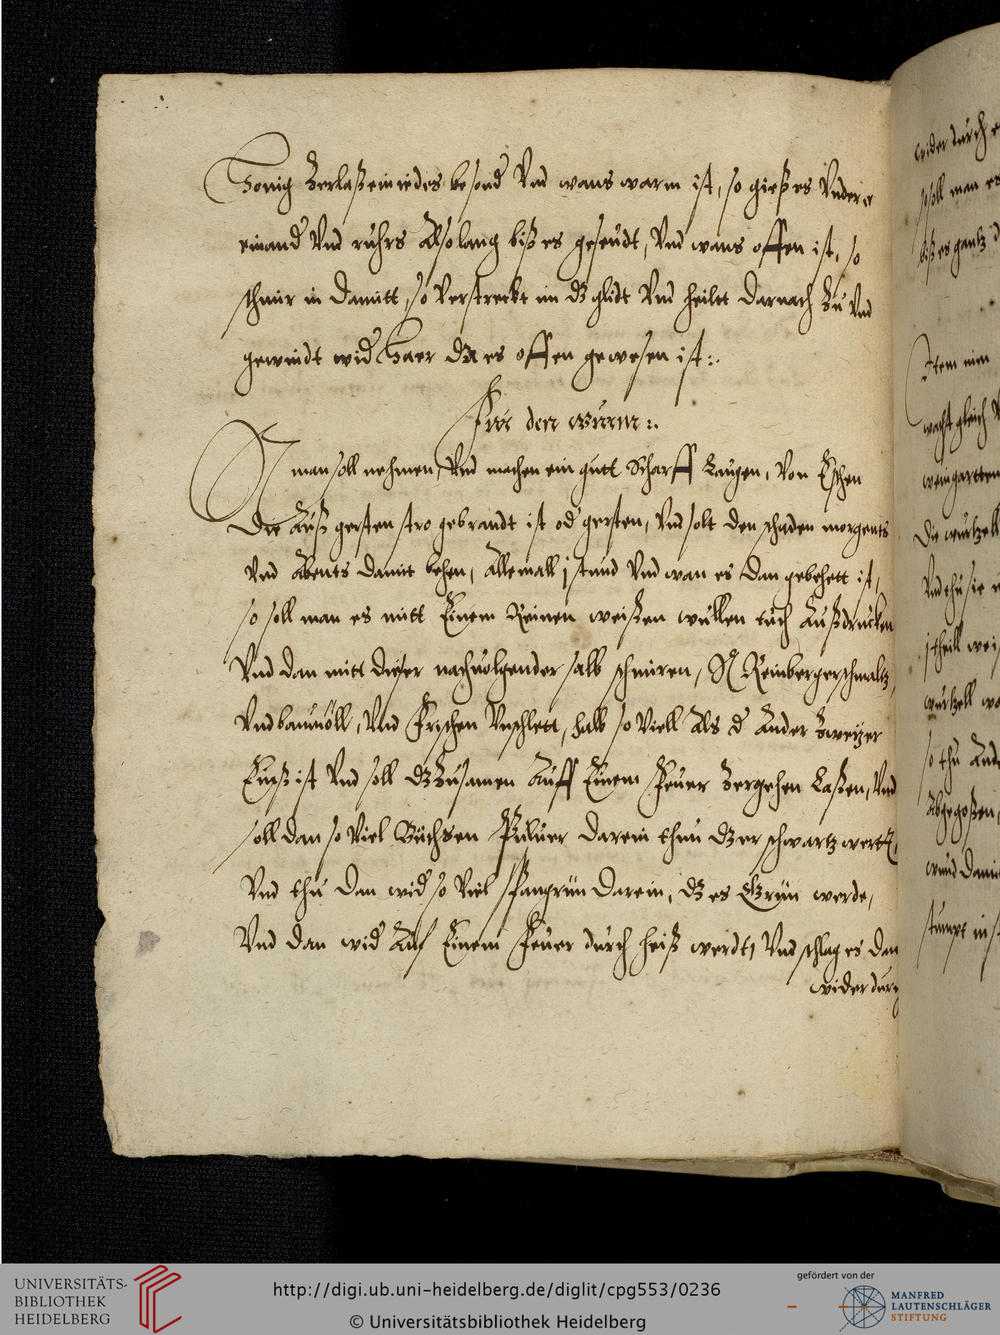 Honig Zerlaß ein iedes besond Vnd wans warm ist, so gieß es Vnder
einand Vnd ruhrs Also lang biß es geseudt, Vnd wans offen ist, so
schmir in damitt, so Verstreckt im dz glidt Vnd heilet darnach Zu Vnd
gewindt wid Haer da es offen gewesen ist :.
Fur den wurm :.
man soll nehmen, Vnd machen ein gutt Scharff Laugen, Von Eschen
die Auß gersten stro gebrandt ist od gersten, Vnd solt den schaden morgents
Vnd Abents damit behen, Allemall j stund Vnd wan es dan gebehett ist,
so soll man es mitt Einem Reinen weißen wullen tuch Außdrucken
Vnd dan mitt dießer nachuolgender salb schmiren, Reinbergerschmaltz,
Vnd baumöll, Vnd Frischen Vnschlett, halb so Viell Als d Ander Zweyer
Einß ist Vnd soll dz Zusamen Auff Einem Feuer Zergehen Laßen, Vnd
soll dan so Viel Büchsen Puluer darein thun dz er schwartz wertt,
Vnd thu dan wid so Viel spangrün darein, dz es Grün werde,
Vnd dan wid Auf Einem Feuer durch heiß werdt, Vnd schlag es dan
wider durch
wider durch
soll man es
biß es gantz
Item nim
gleich
weingartten
die wurtzell
Vnd thu sie
j theill
wurtzell
so thu
Abgegoßen,
wund
stumpt
UNIVERSITÄTS-
BIBLIOTHEK
HEIDELBERG
http://digi.ub.uni-heidelberg.de/diglit/cpg553/0236
© Universitätsbibliothek Heidelberg
gefördert von der
MANFRED
LAUTENSCHLÄGER
STIFTUNG